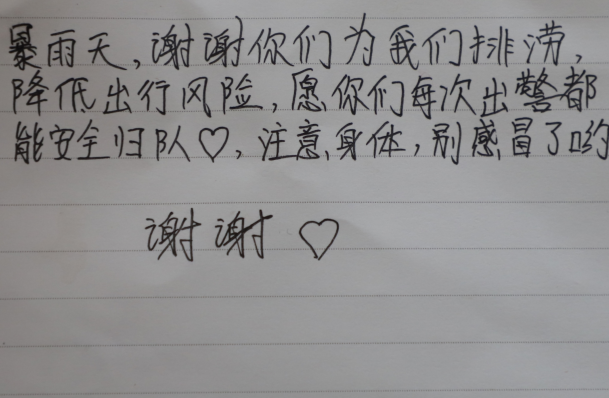 暴雨天,谢谢你们为我们排涝,
降低出行风险,愿你们每次出警都
能安全归队♡,注意身体,别感冒了哟
谢谢♡